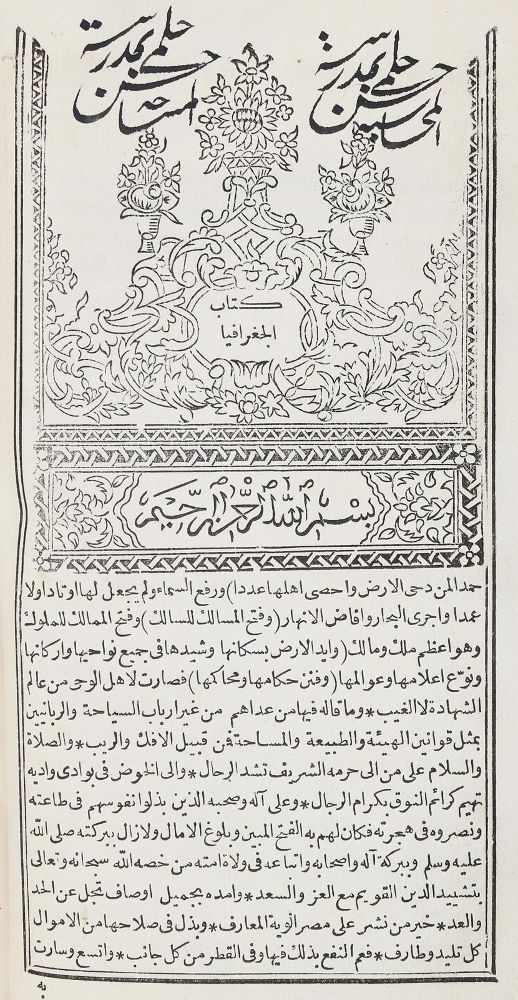 حسن حلمي بمدرسة
المحاسبة
حسن حلمي بمدرسة
المساحة
كتاب
الجغرافيا
بسم الله الرحمن الرحيم
حمدا لمن دحى الارض واحصى اهلها عددا) ورفع السماء ولم يجعل لها اوتادا ولا
عمدا واجرى البحار وافاض الانهار (وفتح المسالك للسالك) وفتح الممالك للملوك
وهو اعظم ملك ومالك (وايد الارض بسكانها وشيدها فى جميع نواحيها واركانها
ونوّع اعلامها وعوالمها (وفنن حكامها ومحاكمها) فصارت لاهل الوحى من عالم
الشهادة لا الغيب * وما قاله فيها من عداهم من غير ارباب السياحة والربانيين
بمثل قوانين الهيئة والطبيعة والمساحة فن قبيل الافك والريب * والصلاة
والسلام على من الى حرمه الشريف تشد الرحال * والى الخوض فى بوادى واديه
تهيم كرائم النوق بكرام الرجال * وعلى آله وصحبه الذين بذلوا نفوسهم فى طاعته
ونصروه فى هجرته فكان لهم به الفتح المبين وبلوغ الامال ولازال ببركته صلى الله
عليه وسلم وببركة آله واصحابه واتباعه فى ولاة امته من خصه الله سبحانه وتعالى
بتشييد الدين القويم مع العز والسعد * وامده بجميل اوصاف تجل عن الحد
والعد * خير من نشر على مصر الوية المعارف * وبذل فى صلاحها من الاموال
كل تليد وطارف * فعم النفع بذلك فيها وفى القطر من كل جانب * واتسع وسارت
به